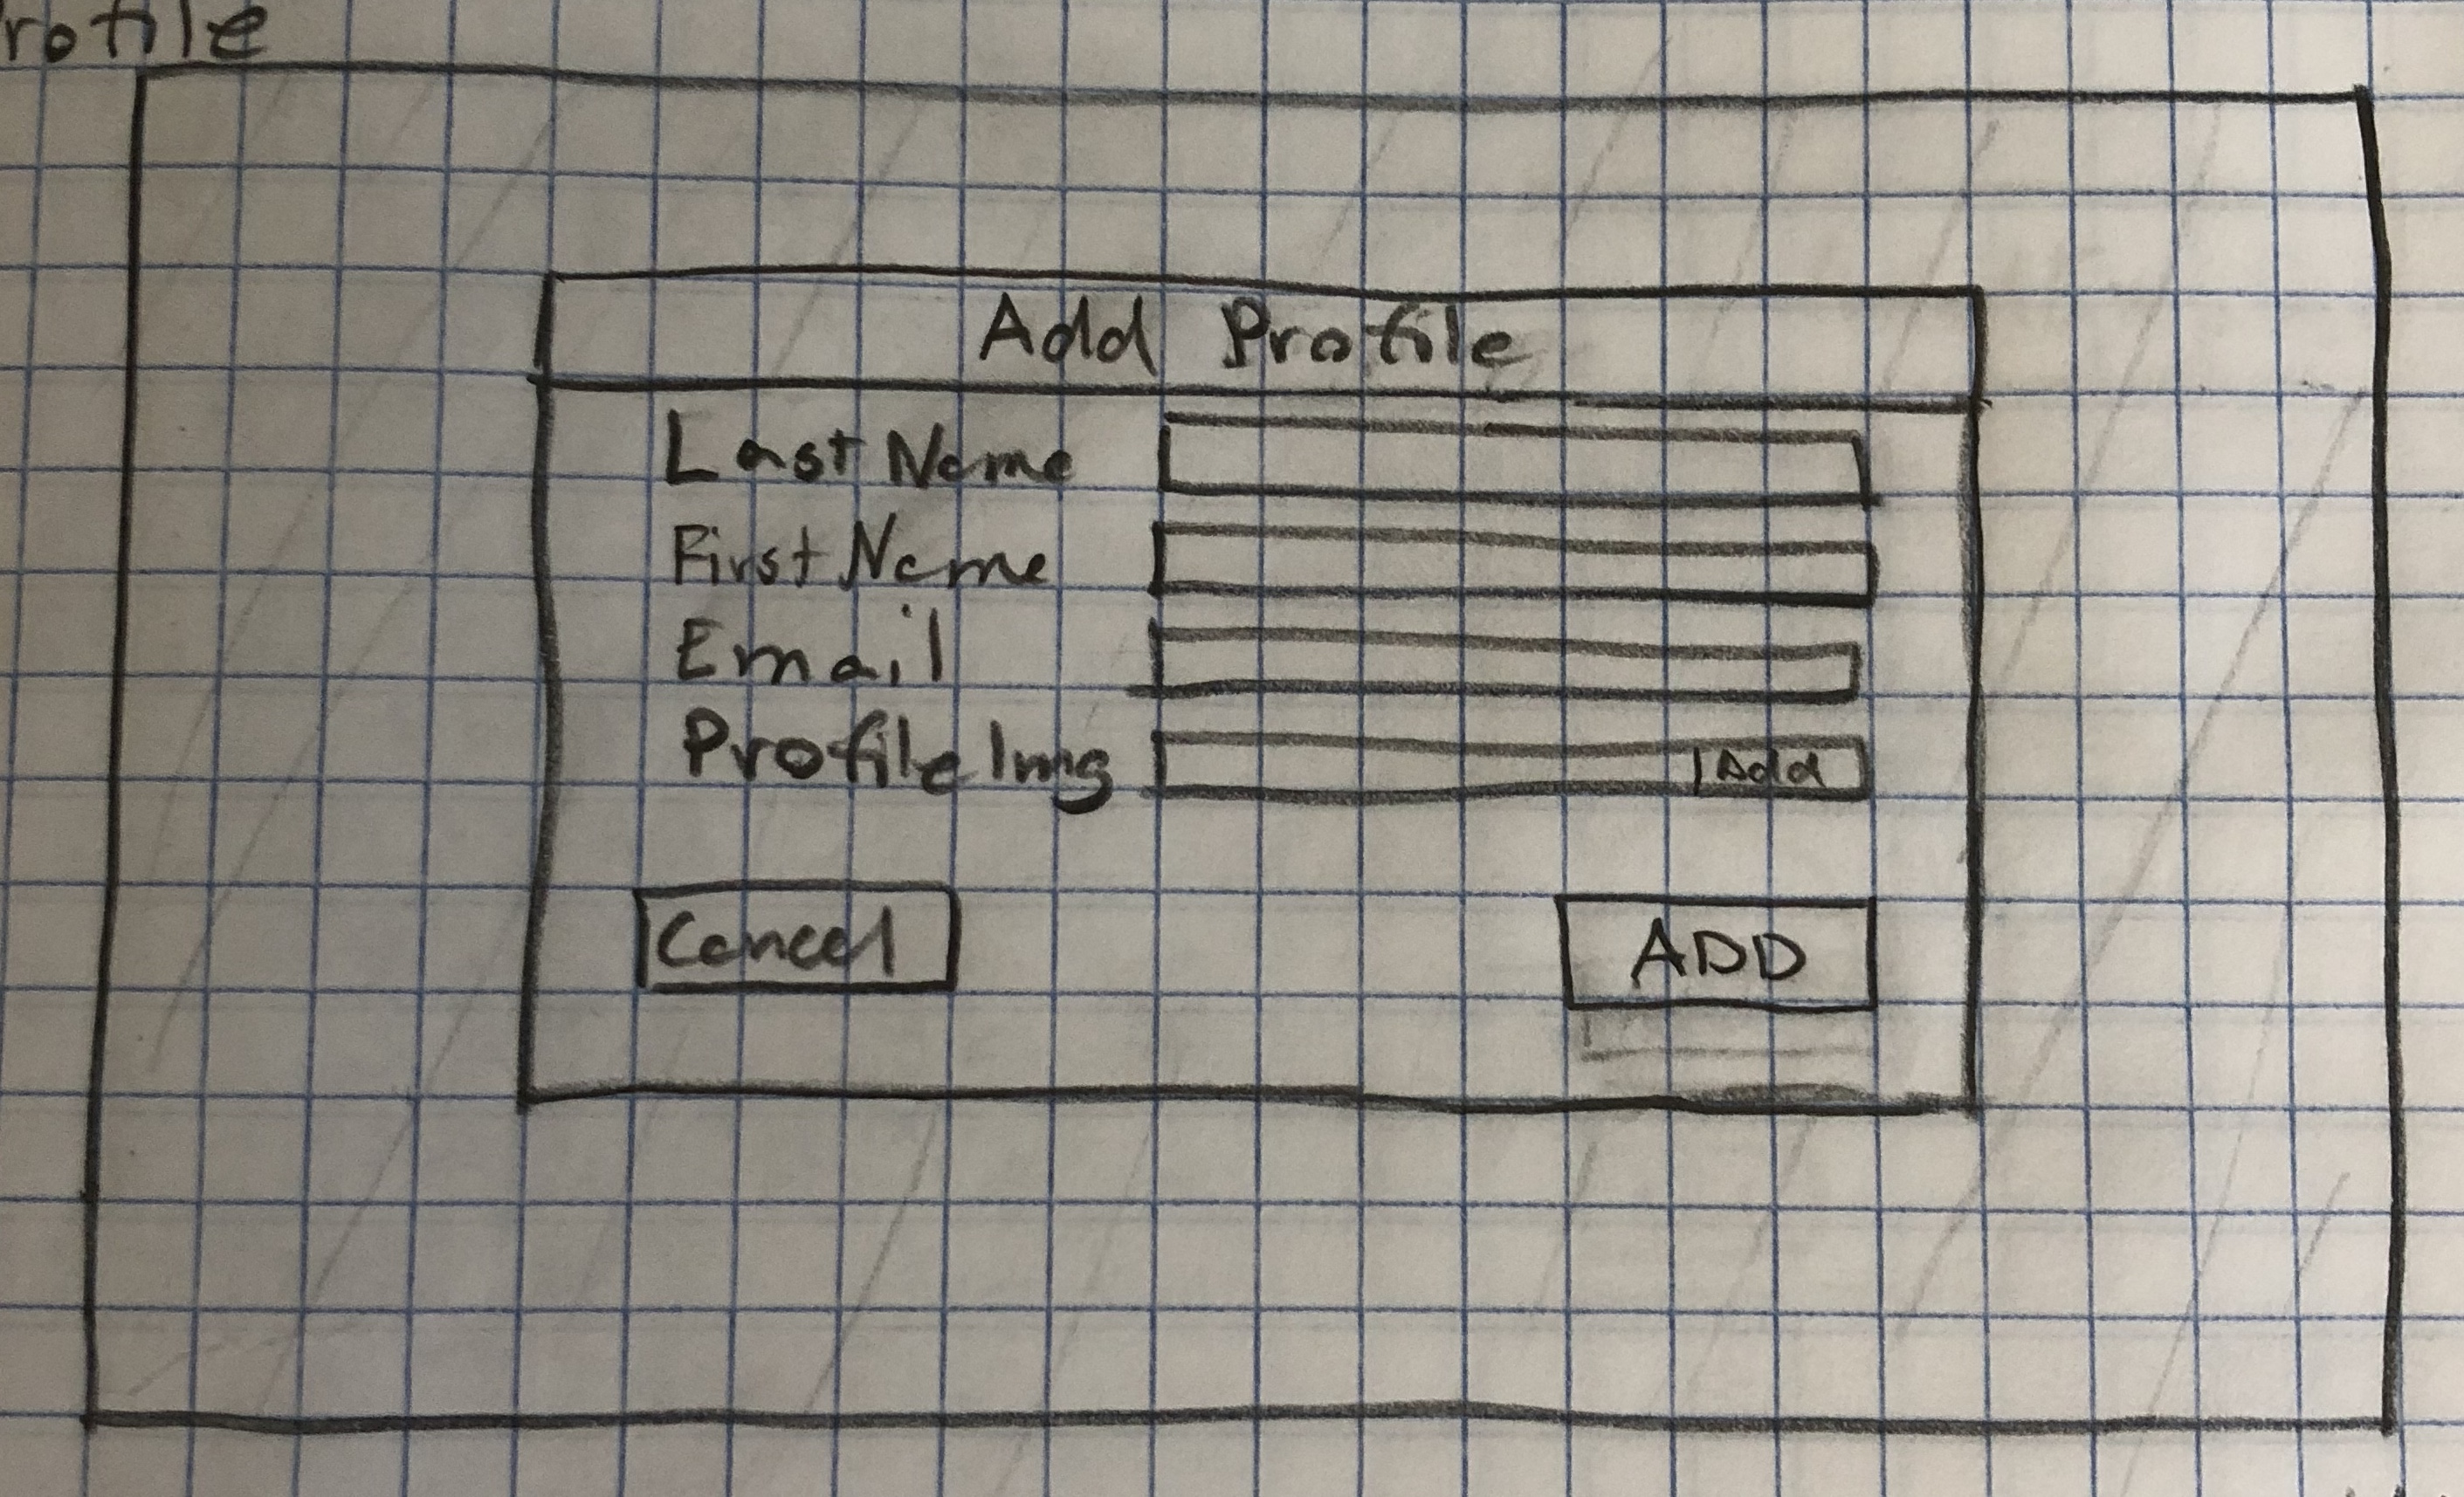 rofile
Add Profile
Last Name
First Name
Email
Profile Img | Add
Cancel ADD